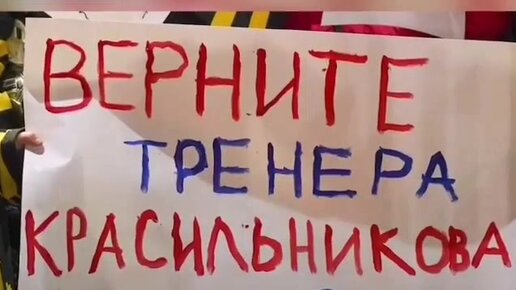 ВЕРНИТЕ
ТРЕНЕРА
КРАСИЛЬНИКОВА